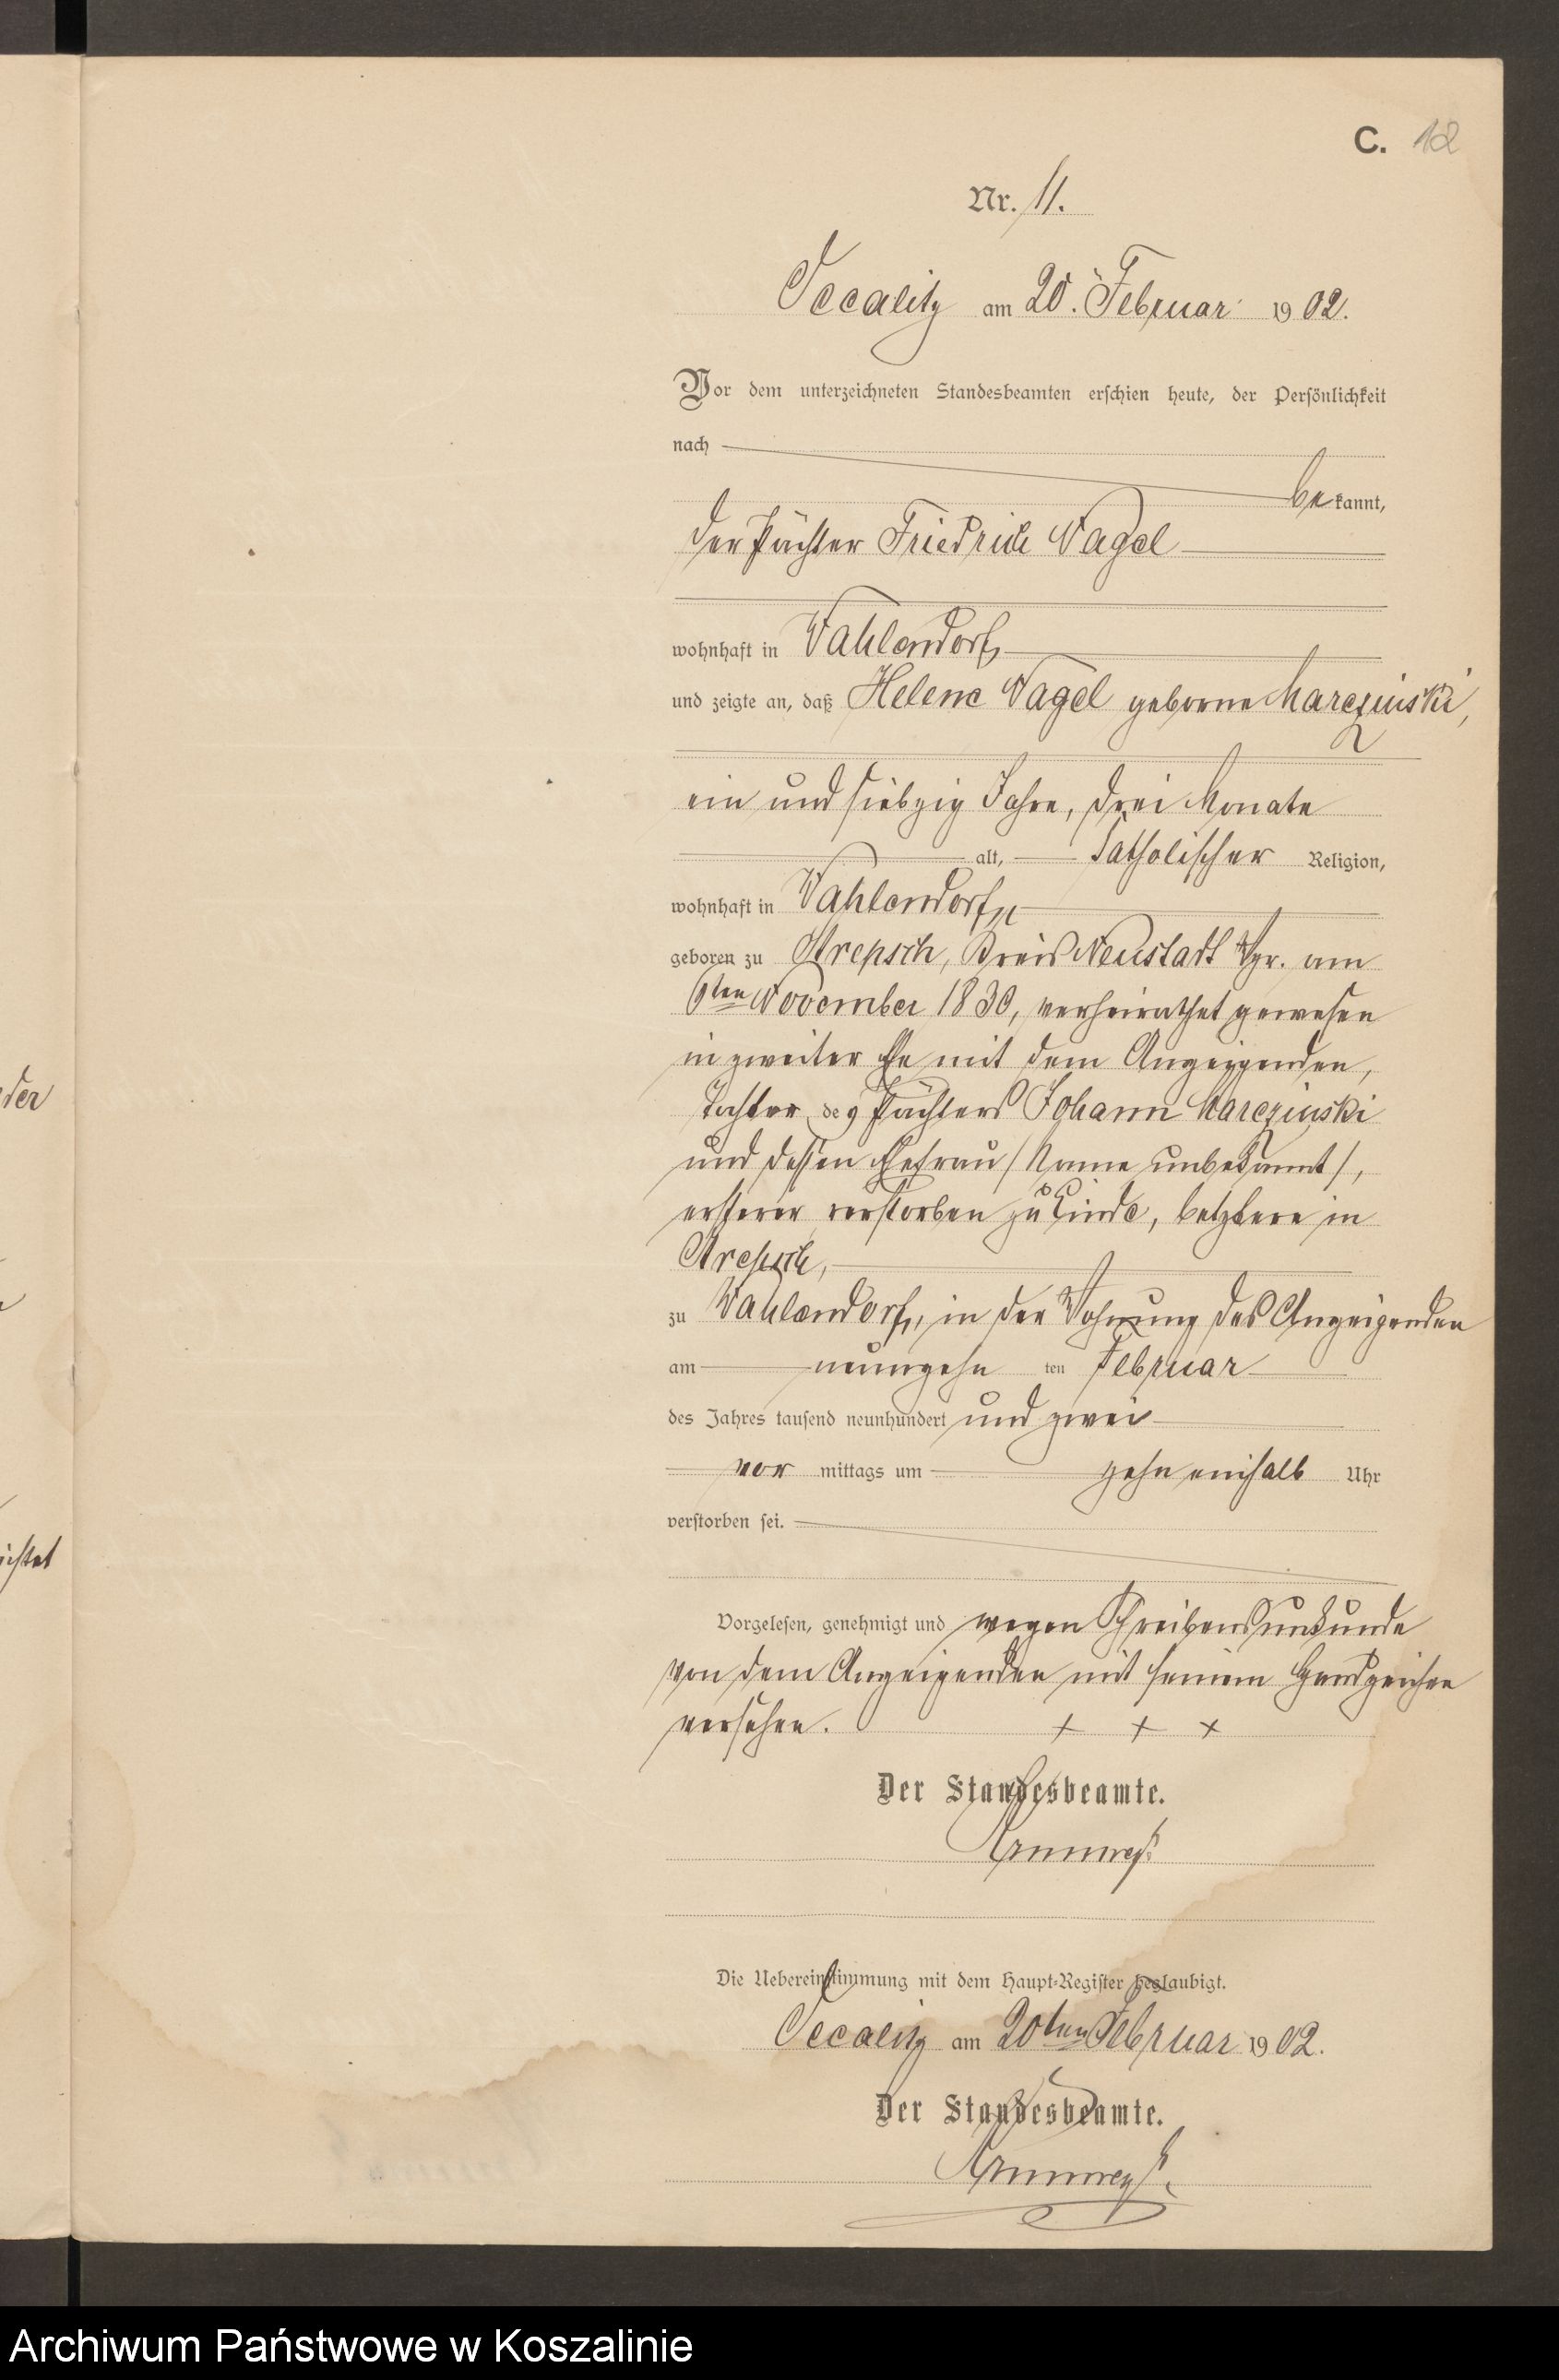 der
ichtet
C. 12
Nr. 11.
Occalitz am 20. Februar 1902.
Vor dem unterzeichneten Standesbeamten erschien heute, der Persönlichkeit
nach
bekannt,
der Pächter Friedrich Nagel
wohnhaft in Wahlendorf,
und zeigte an, daß Helene Nagel geborne Marczinski,
ein und siebzig Jahre, drei Monate
alt, katholischer Religion,
wohnhaft in Wahlendorf,
geboren zu Strepsch, Kreis Neustadt Wpr. am
6ten November 1830, verheirathet gewesen
in zweiter Ehe mit dem Anzeigenden,
Tochter des Pächters Johann Marczinski
und dessen Ehefrau /Name unbekannt/,
ersterer verstorben zu Linde, letztere in
Strepsch,
zu Wahlendorf, in der Wohnung des Anzeigenden
am neunzehn ten Februar
des Jahres tausend neunhundert und zwei
vor mittags um zehn einhalb Uhr
verstorben sei.
Vorgelesen, genehmigt und wegen Schreibensunkunde
von dem Anzeigenden mit seinem Handzeichen
versehen. + + +
Der Standesbeamte.
Die Uebereinstimmung mit dem Haupt-Register beglaubigt.
Occalitz am 20ten Februar 1902.
Der Standesbeamte.
Archiwum Państwowe w Koszalinie